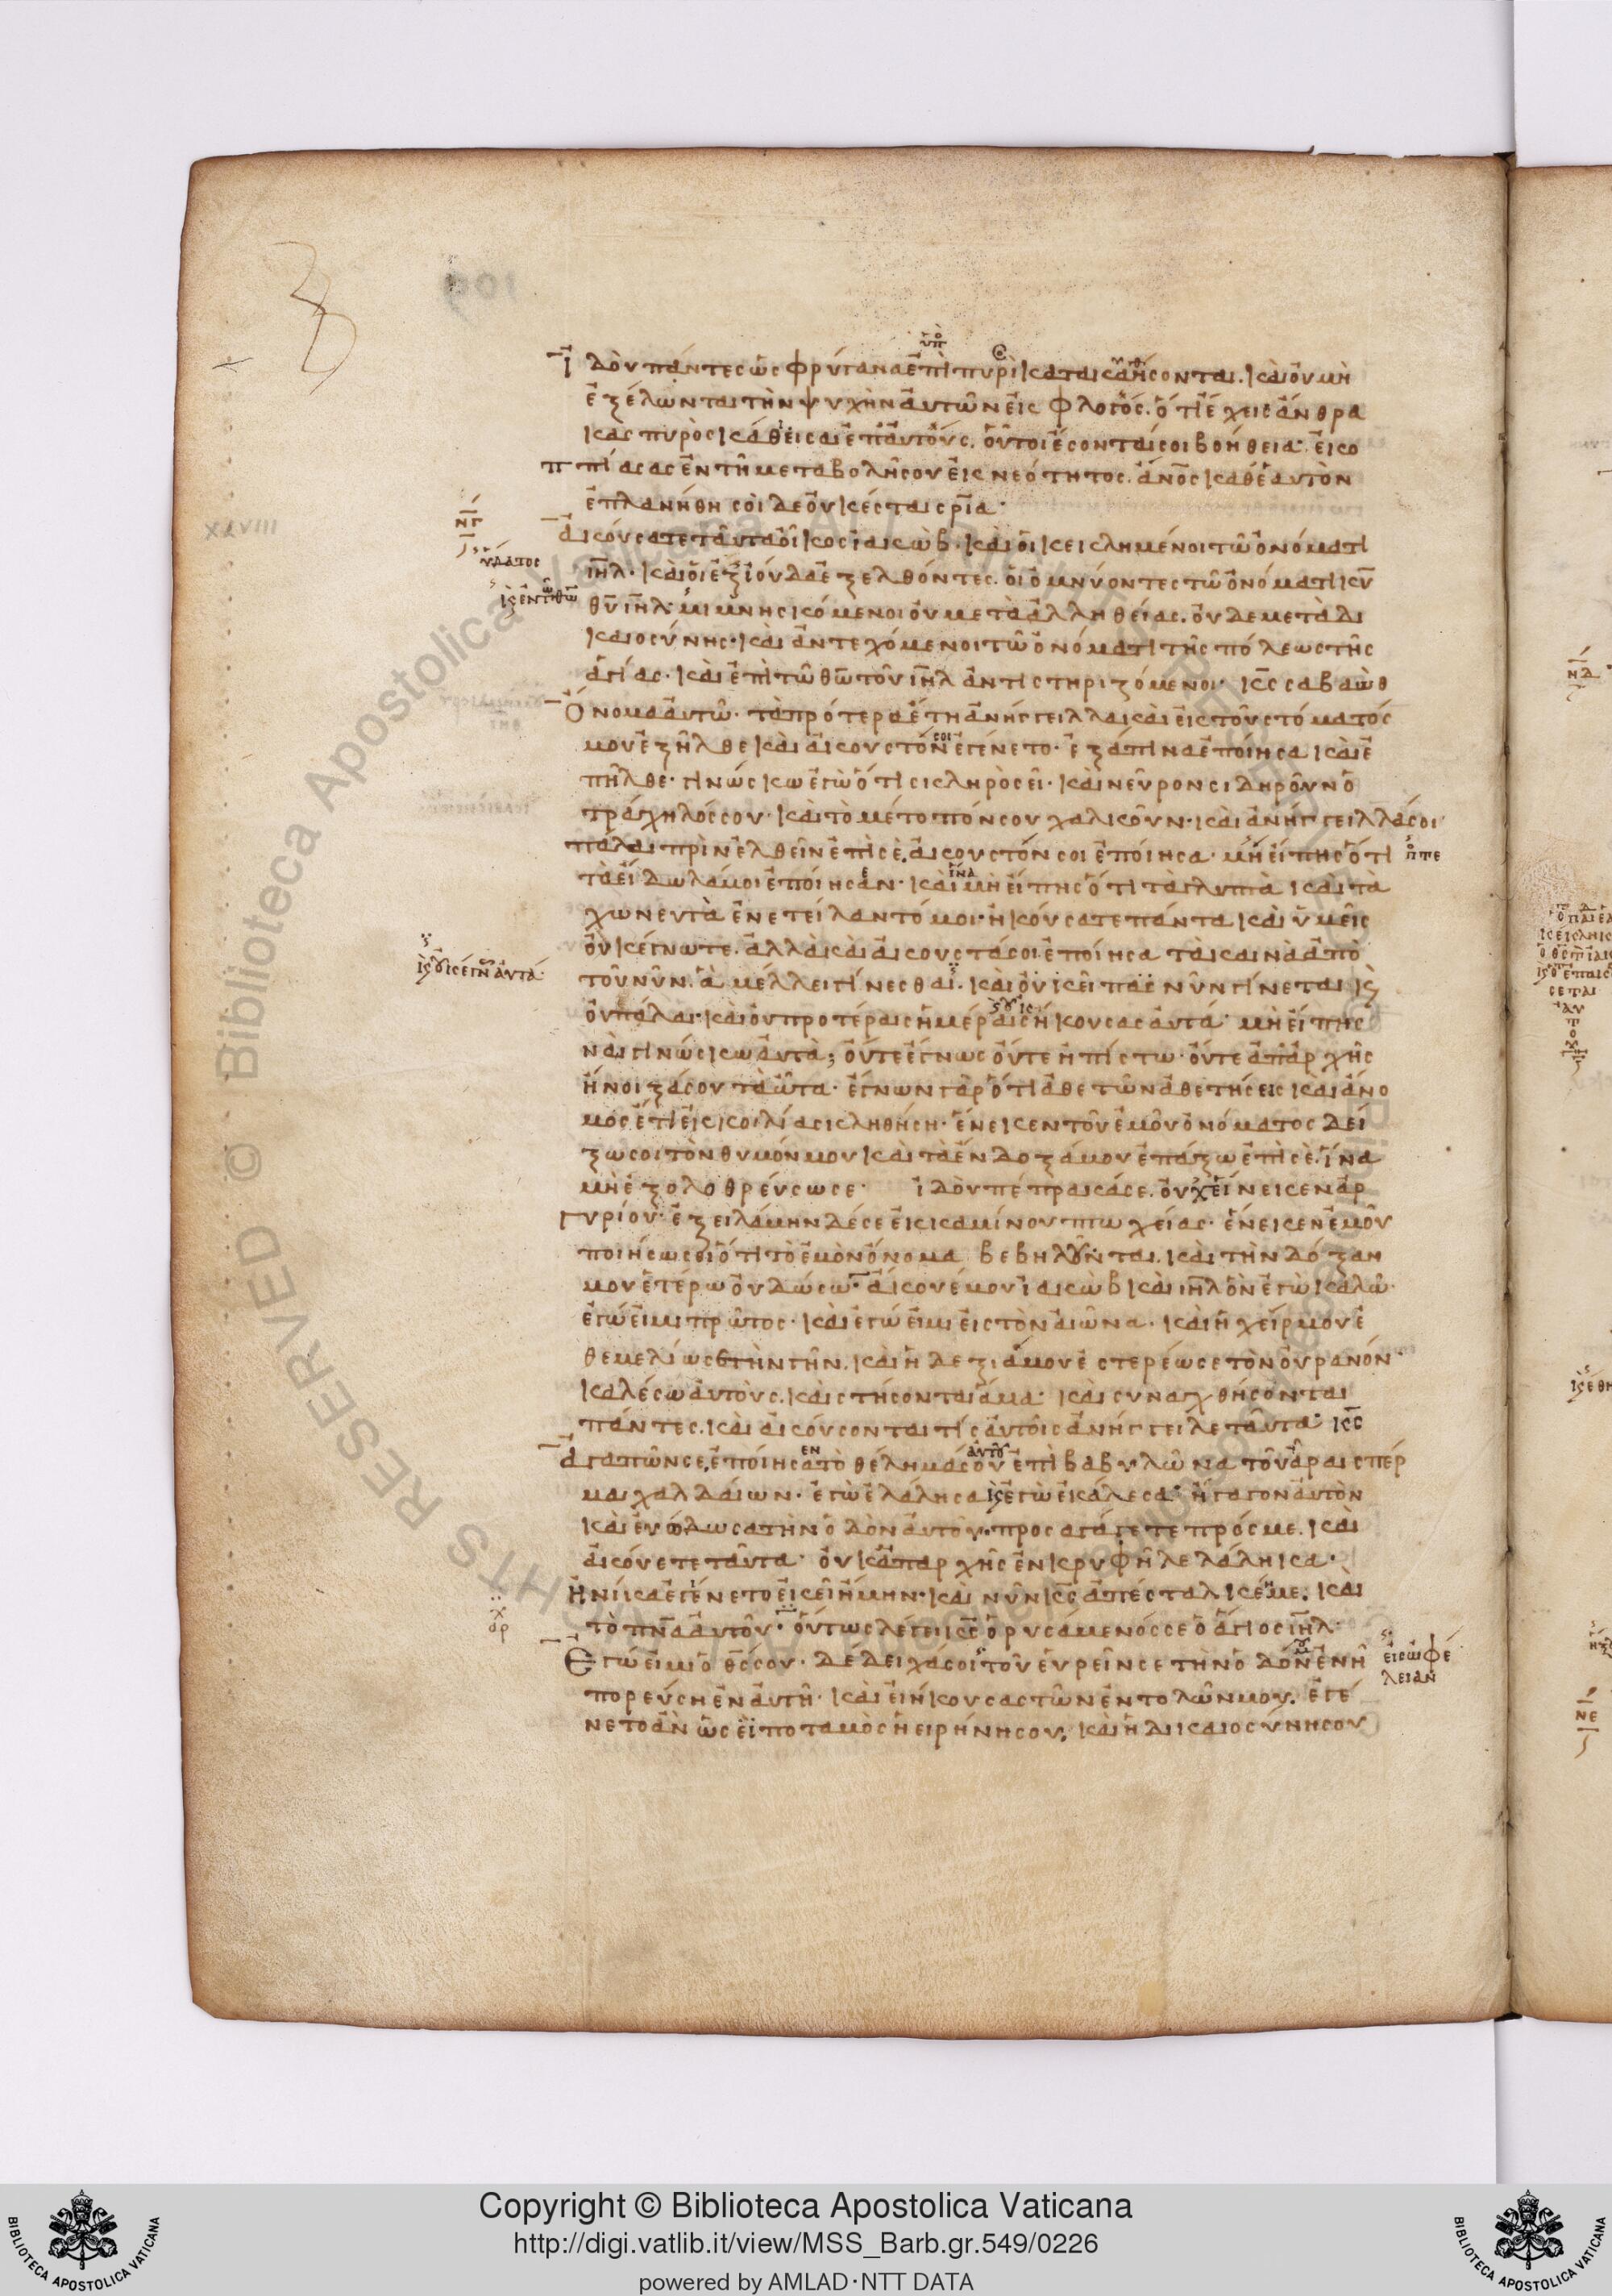 Ἰδοὺ πάντες ὡς φρύγανα ἐπὶ πυρὶ κατακαήσονται. καὶ οὐ μὴ
ἐξέλωνται τὴν ψυχὴν αὐτῶν εἰς φλογός. ὅτι ἔχεις ἄνθρα
κας πυρὸς κάθεισαι ἐπ' αὐτούς. οὗτοι ἔσονταί σοι βοήθεια. ἐκο
πίασας ἐν τῇ μεταβολῇ σου ἐκ νεότητος. ἄνος καθ' ἑαυτὸν
ἐπλανήθη σοὶ δὲ οὐκ ἔσται σρία·
ἀκούσατε ταῦτα οἶκος ἰακώβ. καὶ οἱ κεκλημένοι τῶ ὀνόματι
ιηλ. καὶ οἱ ἐξ ἰούδα ἐξελθόντες. οἱ ὀμνύοντες τῶ ὀνόματι κυ
θυ ιηλ μιμνησκόμενοι οὐ μετὰ ἀλληθείας. οὐδὲ μετὰ δι
καιοσύνης. καὶ ἀντεχόμενοι τῶ ὀνόματι τῆς πόλεως τῆς
ἁγίας. καὶ ἐπὶ τῶ θω τοῦ ιηλ ἀντιστηριζόμενοι. κς σαβαὼθ
Ὄνομα αὐτῶ. τὰ πρότερα ἔτη ἀνήγγειλλα καὶ ἐκ τοῦ στόματός
μου ἐξῆλθε καὶ ἀκουστὸν ἐγένετο. ἐξάπινα ἐποίησα καὶ ἐ
πῆλθε. γινώσκω ἐγὼ ὅτι σκληρὸς εἶ. καὶ νεῦρον σιδηροῦν ὁ
τράχηλός σου. καὶ τὸ μέτοπόν σου χαλκοῦν. καὶ ἀνήγγειλλά σοι
πάλαι πρὶν ἐλθεῖν ἐπὶ σὲ. ἀκουστόν σοι ἐποίησα. μὴ εἴπης ὅτι
τὰ εἴδωλά μοι ἐποίησαν. καὶ μὴ εἴπης ὅτι τὰ γλυπτὰ καὶ τὰ
χωνευτὰ ἐνετείλαντό μοι. ἠκούσατε πάντα καὶ ὑμεῖς
οὐκ ἔγνωτε. ἀλλὰ καὶ ἀκουστά σοι ἐποίησα τὰ καινὰ ἀπὸ
τοῦ νῦν. ἃ μέλλει γίνεσθαι. καὶ οὐκ εἶπας νῦν γίνεται κ
οὐ πάλαι. καὶ οὐ προτέραις ἡμέραις ἤκουσας αὐτά. μὴ εἴπης
ναὶ γινώσκω αὐτὰ; οὔτε ἔγνως οὔτε ἠπίστω. οὔτε ἀπ' ἀρχῆς
ἤνοιξά σου τὰ ὦτα. ἔγνων γὰρ ὅτι ἀθετῶν ἀθετήσεις καὶ ἄνο
μος ἔτι ἐκ κοιλίας κληθήση. ἕνεκεν τοῦ ἐμοῦ ὀνόματος δεί
ξω σοι τὸν θυμόν μου καὶ τὰ ἔνδοξά μου ἐπάξω ἐπὶ σὲ. ἵνα
μὴ ἐξολοθρεύσω σε· ἰδοὺ πέπρακά σε. οὐχ ἕινεκεν ἀρ
γυρίου. ἐξειλάμην δέ σε ἐκ καμίνου πτωχείας. ἕνεκεν ἐμοῦ
ποιήσω σοι ὅτι τὸ ἐμὸν ὄνομα βεβηλοῦνται. καὶ τὴν δόξαν
μου ἑτέρω οὐ δώσω. ἄκουέ μου ἰακὼβ καὶ ιηλ ὃν ἐγὼ καλῶ.
ἐγώ εἰμι πρῶτος. καὶ ἐγώ εἰμι εἰς τὸν αἰῶνα. καὶ ἡ χείρ μου ἐ
θεμελίωσε τὴν γῆν. καὶ ἡ δεξιά μου ἐστερέωσε τὸν οὐρανόν.
καλέσω αὐτοὺς. καὶ στήσονται ἅμα. καὶ συναχθήσονται
πάντες. καὶ ἀκούσονται τίς αὐτοῖς ἀνήγγειλε ταῦτα. κς
ἀγαπῶν σε ἐποίησα τὸ θέλημά σου ἐπὶ βαβυλῶνα τοῦ ἆραι σπέρ
μα χαλδαίων. ἐγὼ ἐλάλησα κ ἐγὼ ἐκάλεσα. ἤγαγον αὐτὸν
καὶ εὐόδωσα τὴν ὁδὸν αὐτοῦ. προσαγάγετε πρός με. καὶ
ἀκούετε ταῦτα. οὐκ ἀπαρχῆς ἐν κρυφῆ λελάληκα.
Ἡνίκα ἐγένετο ἐκεῖ ἤμην. καὶ νῦν κς ἀπέσταλκέ με. καὶ
τὸ πνα αὐτοῦ. οὕτως λέγει κς ὁ ῥυσάμενός σε ὁ ἅγιος ιηλ
Ἐγώ εἰμι ὁ θς σου. δέδειχά σοι τοῦ εὑρεῖν σε τὴν ὁδὸν ἐν ἧ
πορεύση ἐν αὐτῆ. καὶ εἰ ἤκουσας τῶν ἐντολῶν μου. ἐγέ
νετο ἂν ὡς εἰ ποταμὸς ἡ εἰρήνη σου. καὶ ἡ δικαιοσύνη σου
ὕδατος
εἰς ὠφέ
λειαν
XLVIII
Copyright © Biblioteca Apostolica Vaticana
http://digi.vatlib.it/view/MSS_Barb.gr.549/0226
powered by AMLAD·NTT DATA